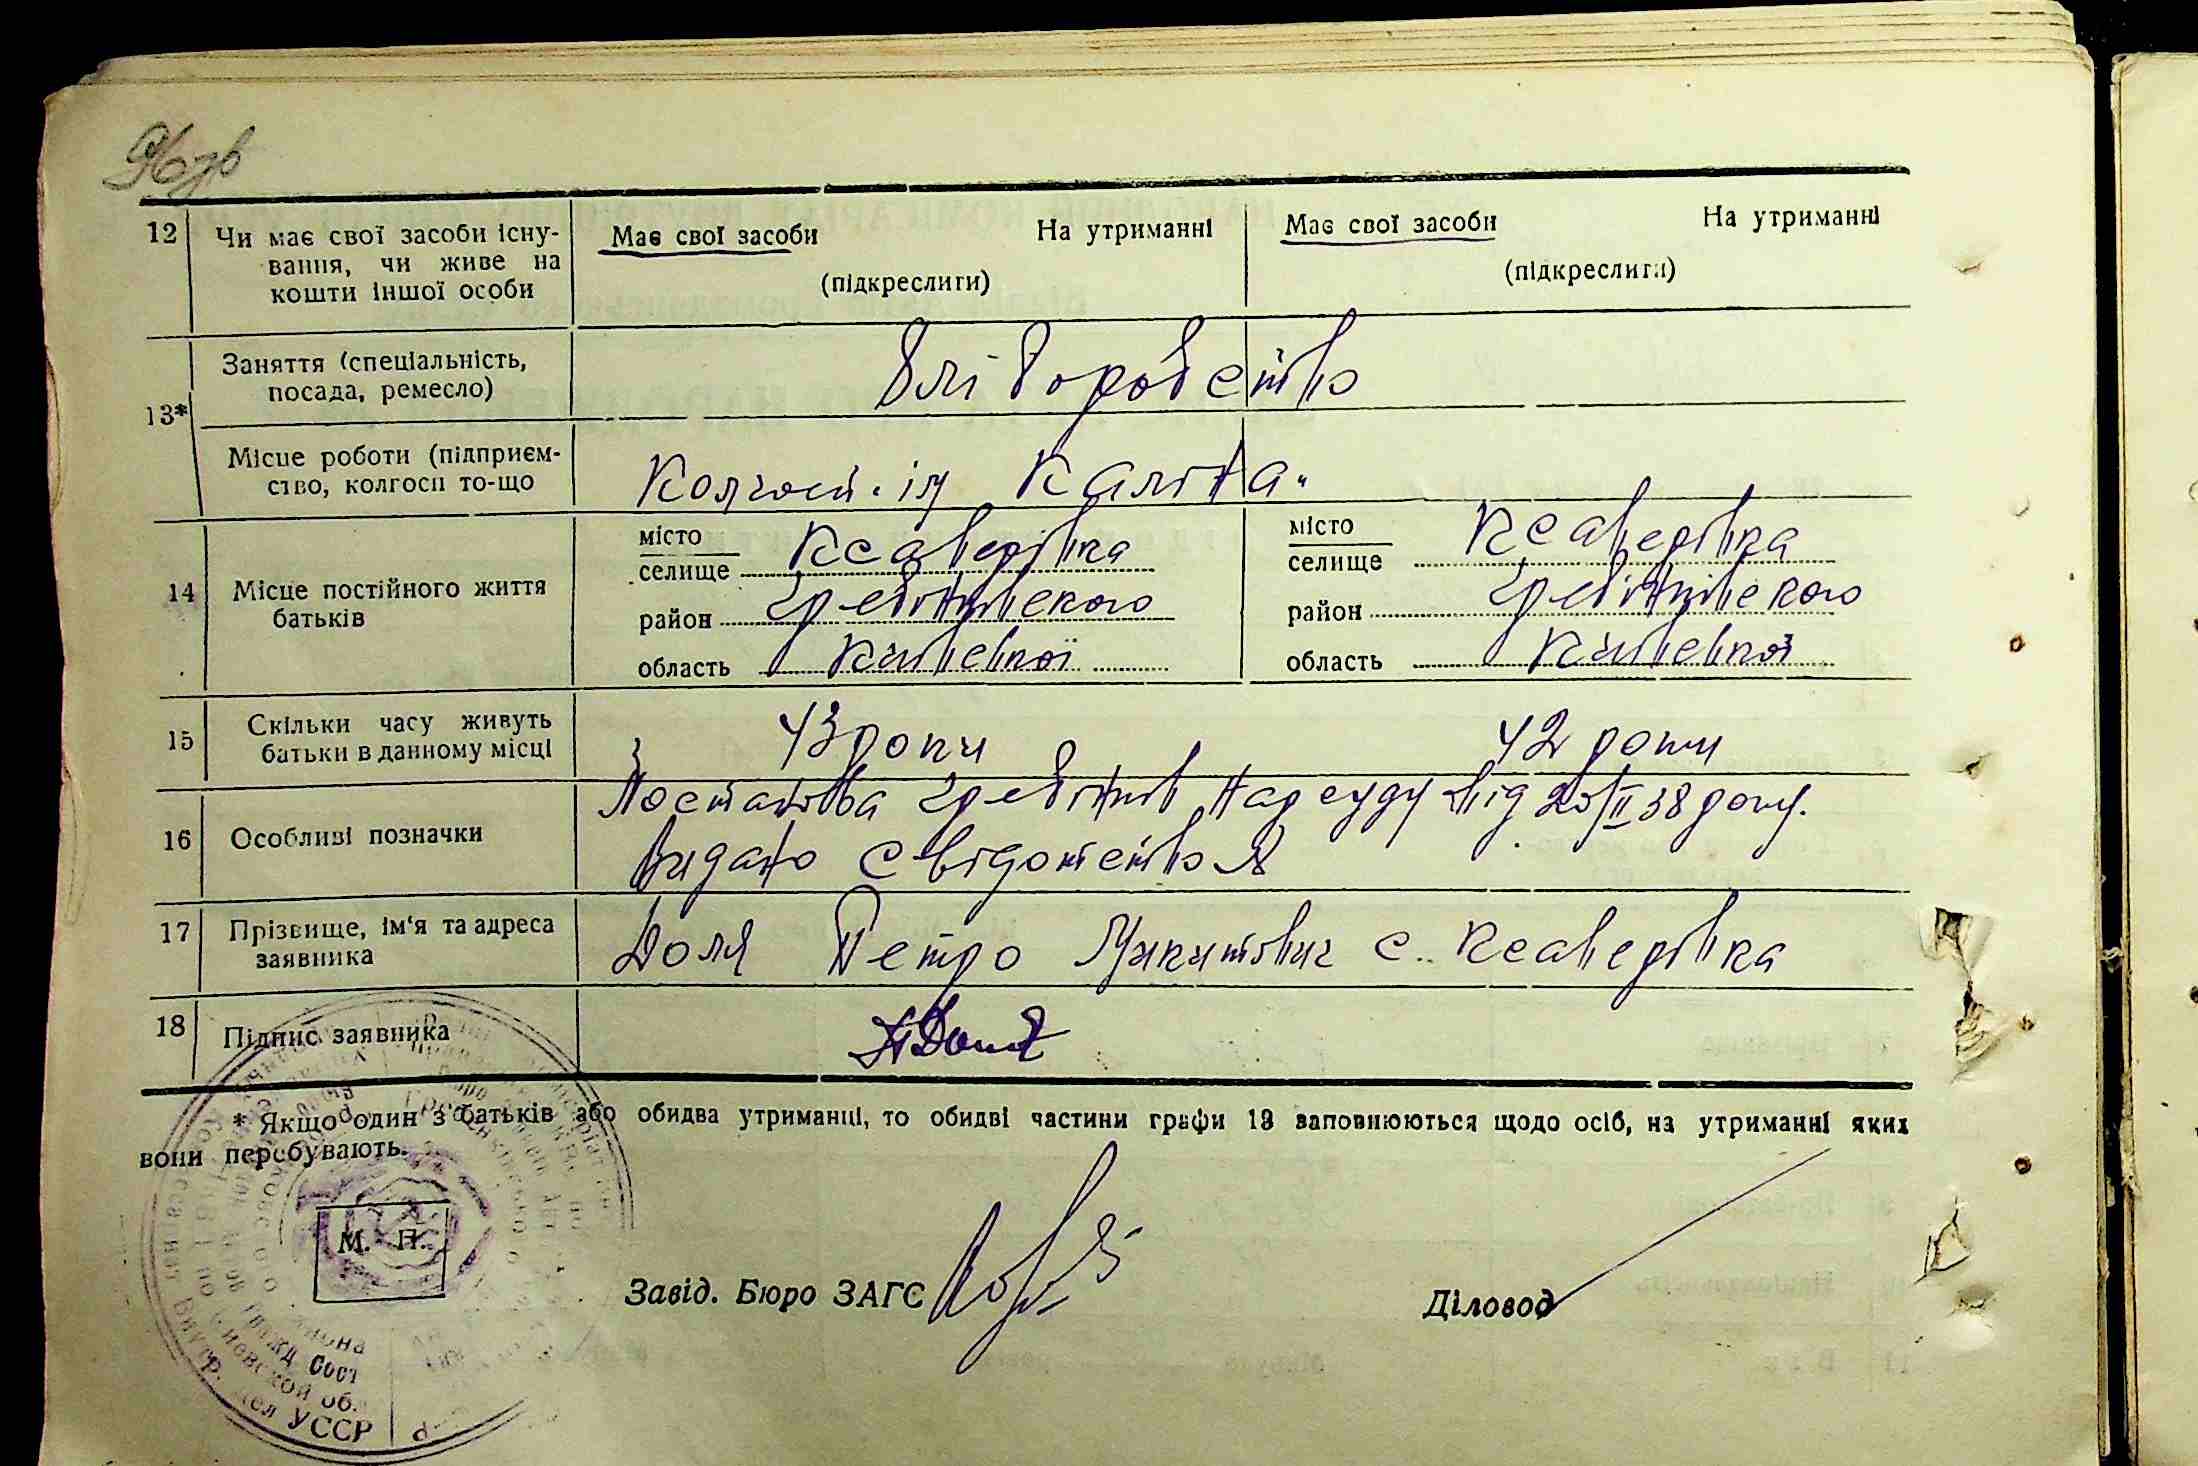 96зв
12 Чи має свої засоби існу- Має свої засоби На утриманні Має свої засоби На утриманні
вання, чи живе на (підкреслити) (підкреслити)
кошти іншої особи
13* Заняття (спеціальність, Хліборобство
посада, ремесло)
Місце роботи (підприєм- Колгосп. ім
ство, колгосп то-що
14 Місце постійного життя батьків місто Ксаверівка місто Ксаверівка
селище селище
район Гребінківського район Гребінківського
область Київської область Київської
15 Скільки часу живуть 43 роки 42 роки
батьки в данному місці
16 Особливі позначки Постанова Гребінків Нарсуду від 20/II 38 року.
Видано свідотство №
17 Прізвище, ім'я та адреса Доля Петро Микитович с. Ксаверівка
заявника
18 Підпис заявника ПДоля
* Якщо один з батьків або обидва утриманці, то обидві частини графи 13 заповнюються щодо осіб, на утриманні яких
вони перебувають.
М. П.
Завід. Бюро ЗАГС Діловод
УССР